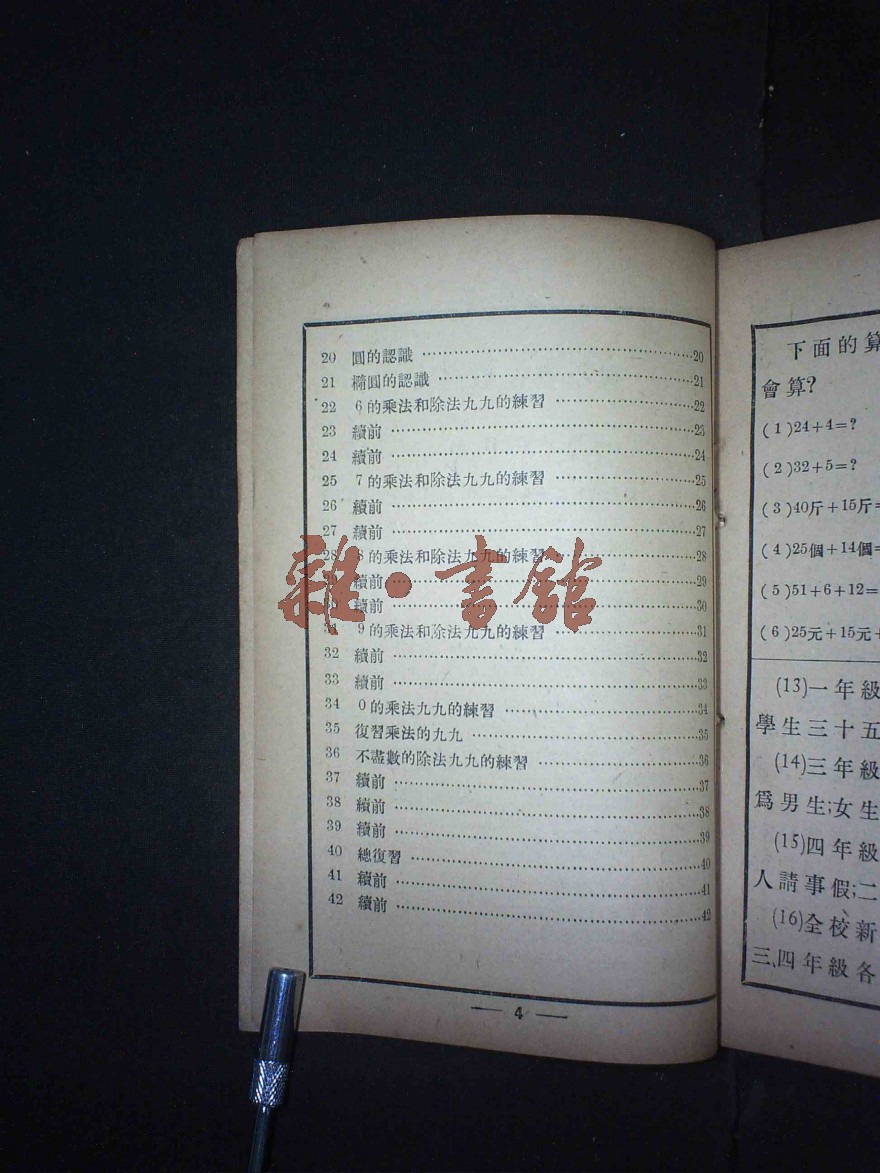 20 圓的認識 ……… 20
21 橢圓的認識 ……… 21
22 6的乘法和除法九九的練習 ……… 22
23 續前 ……… 23
24 續前 ……… 24
25 7的乘法和除法九九的練習 ……… 25
26 續前 ……… 26
27 續前 ……… 27
28 8的乘法和除法九九的練習 ……… 28
29 續前 ……… 29
30 續前 ……… 30
31 9的乘法和除法九九的練習 ……… 31
32 續前 ……… 32
33 續前 ……… 33
34 0的乘法九九的練習 ……… 34
35 復習乘法的九九 ……… 35
36 不盡數的除法九九的練習 ……… 36
37 續前 ……… 37
38 續前 ……… 38
39 續前 ……… 39
40 總復習 ……… 40
41 續前 ……… 41
42 續前 ……… 42
— 4 —
雜·書館
下面的算
會算?
(1)24+4=?
(2)32+5=?
(3)40斤+15斤=
(4)25個+14個=
(5)51+6+12=
(6)25元+15元+
(13)一年級
學生三十五
(14)三年級
爲男生;女生
(15)四年級
人請事假;二
(16)全校新
三、四年級各